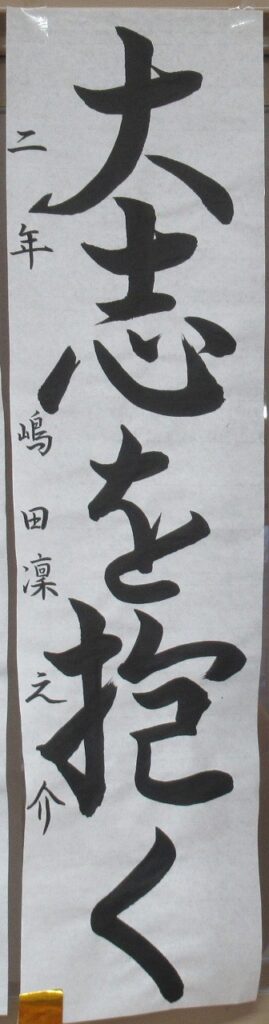 大志を抱く
二年 嶋田凜之介